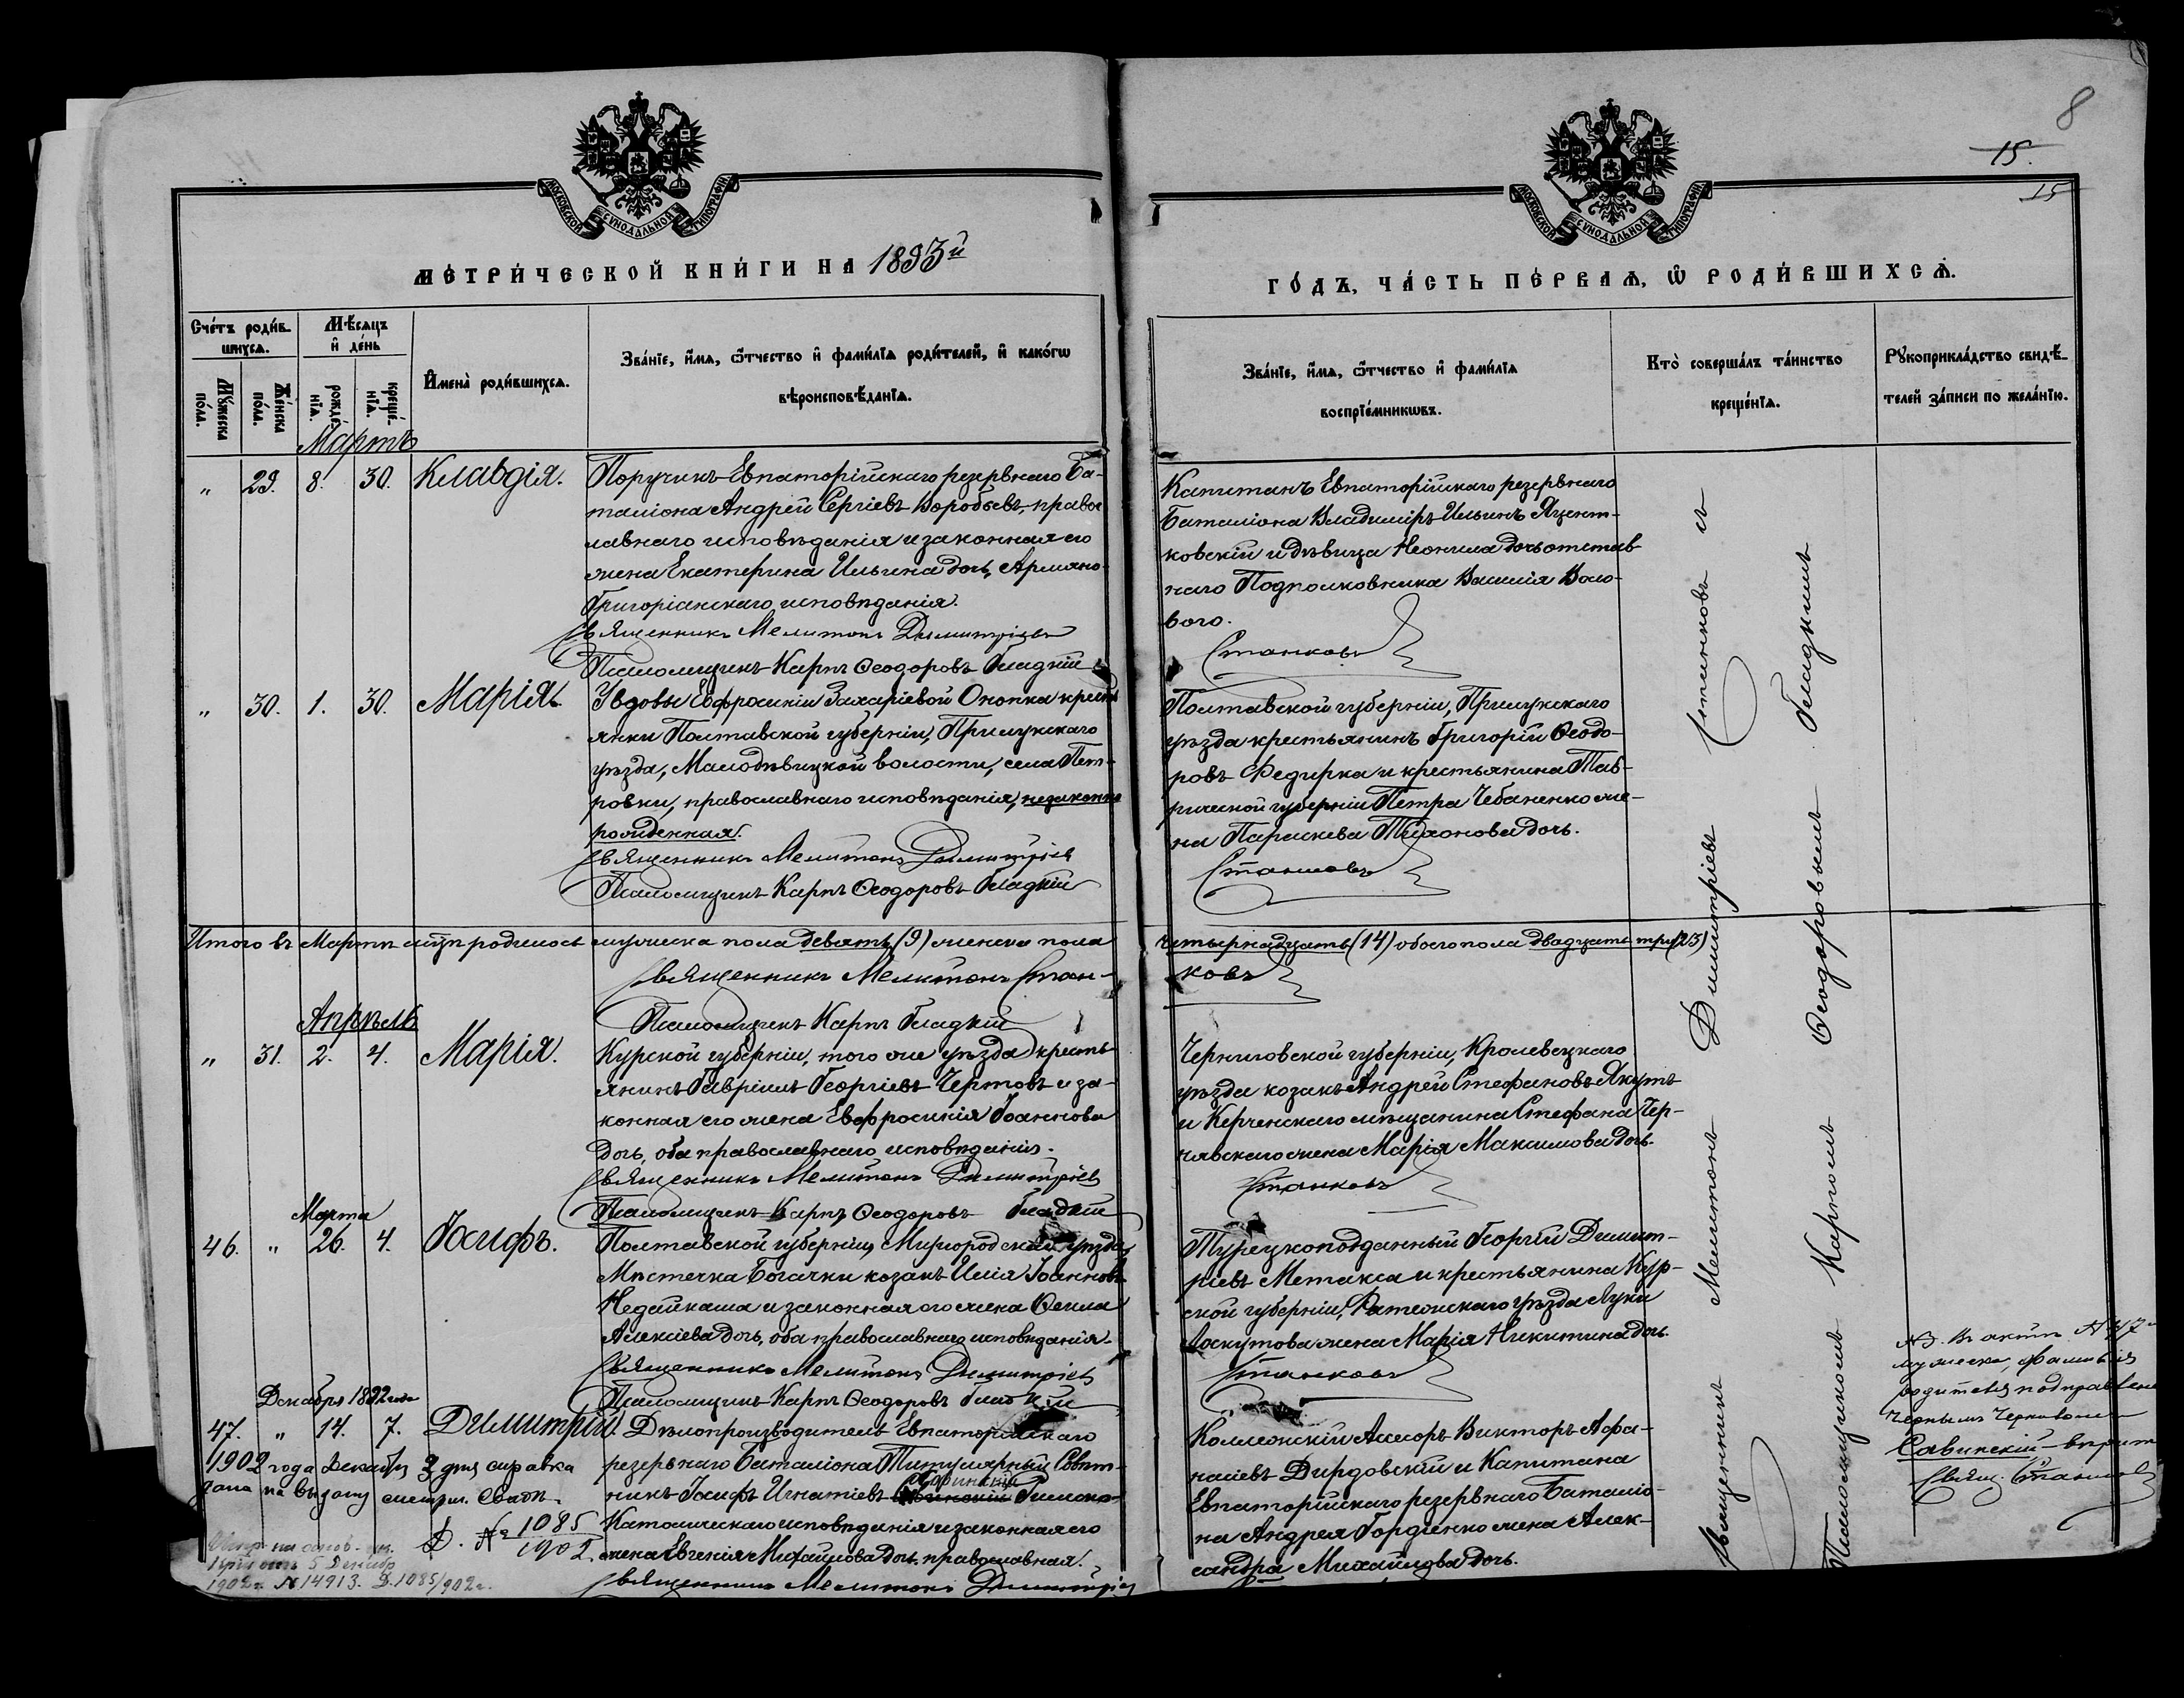 8
15.
15
МОСКОВСКОЙ СѴНОДАЛЬНОЙ ТИПОГРАФІИ
МОСКОВСКОЙ СѴНОДАЛЬНОЙ ТИПОГРАФІИ
МЕТРИЧЕСКОЙ КНИГИ НА 1893й
ГОДЪ, ЧАСТЬ ПЕРВАЯ, Ѡ РОДИВШИХСЯ.
Счетъ родив-
шихся.
Мѣсяцъ
и день
Мужеска
пола.
Женска
пола.
рожде-
нія.
креще-
нія.
Имена родившихся.
Званіе, имя, отчество и фамилія родителей, и какогѡ
вѣроисповѣданія.
Званіе, имя, отчество и фамилія
воспріемникѡвъ.
Кто совершалъ таинство
крещенія.
Рукоприкладство свидѣ-
телей записи по желанію.
Мартъ
" 29. 8. 30. Клавдія.
Поручикъ Евпаторійскаго резервнаго Ба-
таліона Андрей Сергіевъ Воробьевъ, правос
лавнаго исповѣданія и законная его
жена Екатерина Ильина дочь, Армяно-
Григоріанскаго исповѣданія.
Священникъ Мелитонъ Димитріевъ
Псаломщикъ Карпъ Ѳеодоровъ Гладкій
Капитанъ Евпаторійскаго резервнаго
Баталіона Владиміръ Ильинъ
ковскій и дѣвица Неонила дочь отстав
наго Подполковника Василія Воло-
вого.
Станковъ
" 30. 1. 30. Марія.
У вдовы Евфросиніи Захаріевой Онопка крест
янки Полтавской губерніи, Прилукскаго
уѣзда, Малодѣвицкой волости, села Пет-
ровки, православнаго исповѣданія, незаконно
рожденная.
Священникъ Мелитонъ Димитріевъ
Псаломщикъ Карпъ Ѳеодоровъ Гладкій
Полтавской губерніи, Прилукскаго
уѣзда крестьянинъ Григорій Ѳеодо-
ровъ Федирка и крестьянина Тав-
рической губерніи Петра Чебаненко же-
на Параскева Тихонова дочь.
Станковъ
Итого въ Мартѣ мцѣ родилось мужеска пола девять (9) женска пола
четырнадцать (14) обоего пола двадцать три (23)
Священникъ Мелитонъ Стан-
ковъ
Псаломщикъ Карпъ Гладкій
Апрѣль
" 31. 2. 4. Марія.
Курской губерніи, того же уѣзда кресть-
янинъ Гавріилъ Георгіевъ Чертовъ и за-
конная его жена Евфросинія Іоаннова
дочь, оба православнаго исповѣданія.
Священникъ Мелитонъ Димитріевъ
Псаломщикъ Карпъ Ѳеодоровъ Гладкій
Черниговской губерніи, Кролевецкаго
уѣзда козакъ Андрей Стефановъ Якутъ
и Керченскаго мѣщанина Стефана Чер-
нявскаго жена Марія Максимова дочь.
Станковъ
Марта
46. " 26. 4. Іосифъ.
Полтавской губерніи, Миргородскаго уѣзда,
Мѣстечка Богачки козакъ Илія Іоанновъ
Недайкаша и законная его жена Ѳекла
Алексіева дочь, оба православнаго исповѣданія.
Священникъ Мелитонъ Димитріевъ
Псаломщикъ Карпъ Ѳеодоровъ Гладкій
Турецкоподданный Георгій Димит-
ріевъ Метакса и крестьянина Кур-
ской губерніи, уѣзда Луки
Лоскутова жена Марія Никитина дочь.
Станковъ
Декабря 1892 года
47. " 14. 7. Димитрій.
Дѣлопроизводитель Евпаторійскаго
резервнаго Баталіона Титулярный Совѣт-
никъ Іосифъ Игнатіевъ Савинскій Римско-
Католическаго исповѣданія и законная его
жена Евгенія Михайлова дочь, православная.
Священникъ Мелитонъ Димитріевъ
Коллежскій Ассесоръ Викторъ Афа-
насіевъ Дирдовскій и Капитана
Евпаторійскаго резервнаго Баталіо-
на Андрея Гордіенко жена Алек-
сандра Михайлова дочь.
1902 года Декабря 3 дня справка
дана на выдачу метрич. Свидѣ.
Д. № 1085/1902.
5 Декабр
1902 г. № 14913. Д. 1085/902 г.
Священникъ Мелитонъ Димитріевъ Станковъ и
Псаломщикомъ Карпомъ Ѳеодоровымъ Гладкимъ
NB. Въ актѣ № 47
мужеска, фамилія
родителя подправлена
черными чернилами
Савинскій - вѣрить
Свящ. Станковъ